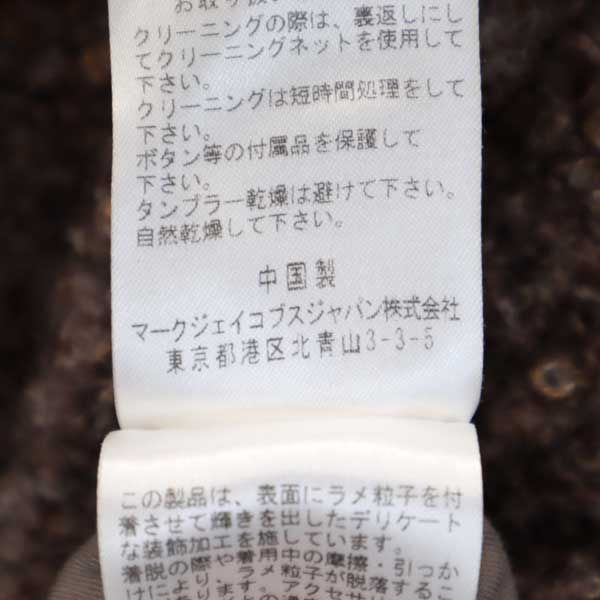 お取り扱
クリーニングの際は、裏返しにし
てクリーニングネットを使用して
下さい。
クリーニングは短時間処理をして
下さい。
ボタン等の付属品を保護して
下さい。
タンブラー乾燥は避けて下さい。
自然乾燥して下さい。
中国製
マークジェイコブスジャパン株式会社
東京都港区北青山3-3-5
この製品は、表面にラメ粒子を付
着させて輝きを出したデリケート
な装飾加工を施しています。
着脱の際や、着用中の摩擦・引っか